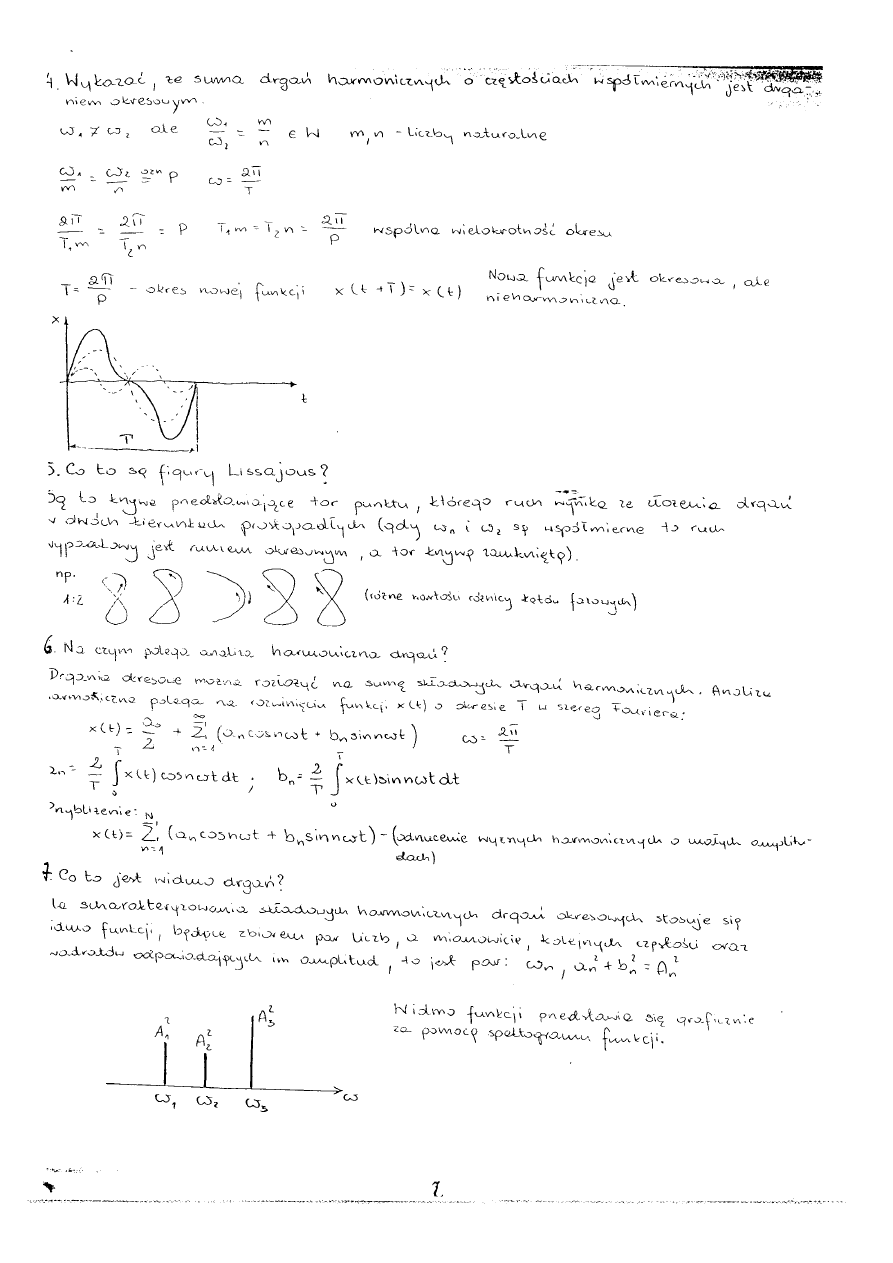 4. Wykazać, że suma drgań harmonicznych o częstościach współmiernych jest drga-
niem okresowym.
ω₁ ≠ ω₂ ale ω₁/ω₂ = m/n ∈ W m,n - liczby naturalne
ω₁/m = ω₂/n ozn= p ω = 2π/T
2π/T₁m = 2π/T₂n = p T₁m = T₂n = 2π/p wspólna wielokrotność okresu
T = 2π/p - okres nowej funkcji x(t+T) = x(t) Nowa funkcja jest okresowa, ale
nieharmoniczna.
x
t
T
5. Co to są figury Lissajous?
Są to krzywe przedstawiające tor punktu, którego ruch wynika ze złożenia drgań
w dwóch kierunkach prostopadłych (gdy ωₙ i ω₂ są współmierne to ruch
wypadkowy jest ruchem okresowym, a tor krzywą zamkniętą).
np.
1:2 (różne wartości różnicy kątów fazowych)
6. Na czym polega analiza harmoniczna drgań?
Drgania okresowe można rozłożyć na sumę składowych drgań harmonicznych. Analiza
armoniczna polega na rozwinięciu funkcji x(t) o okresie T w szereg Fouriera:
x(t) = a₀/2 + ∑ₙ₌₁^∞ (aₙcosnωt + bₙsinnωt) ω = 2π/T
aₙ = 2/T ∫₀ᵀ x(t)cosnωt dt ; bₙ = 2/T ∫₀ᵀ x(t)sinnωt dt
Przybliżenie:
x(t) = ∑ₙ₌₁^N (aₙcosnωt + bₙsinnωt) - (odrzucenie wyższych harmonicznych o małych amplitu-
dach)
7. Co to jest widmo drgań?
la scharakteryzowania składowych harmonicznych drgań okresowych stosuje się
idmo funkcji, będące zbiorem par liczb, a mianowicie, kolejnych częstości oraz
wadratów odpowiadających im amplitud, to jest par: ωₙ, aₙ² + bₙ² = Aₙ²
Widmo funkcji przedstawia się graficznie
za pomocą spektogramu funkcji.
A₁² A₂² A₃²
ω₁ ω₂ ω₃ ω
2.